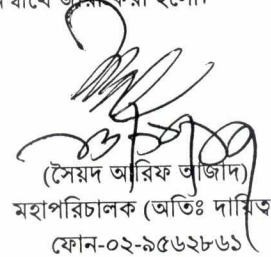 জারী করা হলো।
(সৈয়দ আরিফ আজাদ)
মহাপরিচালক (অতিঃ দায়িত্ব
ফোন-০২-৯৫৬২৮৬১